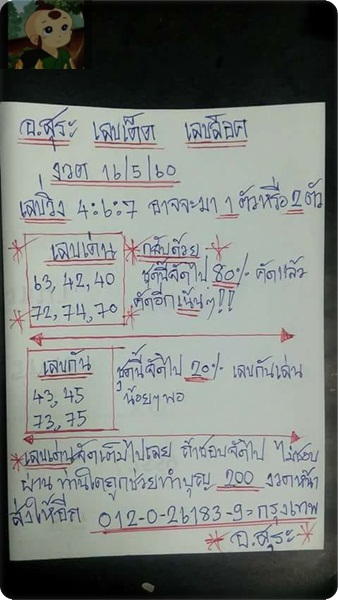 อ.สุระ เลขเด็ด เลขล็อค
งวด 16/5/60
เลขวิ่ง 4:6:7 อาจจะมา 1 ตัวหรือ 2 ตัว
เลขเด่น
63, 42, 40
72, 74, 70
กลับด้วย
ชุดนี้จัดไป 80% คัดแล้ว
คัดอีกเน้นๆ!!
เลขกัน
43, 45
73, 75
ชุดนี้จัดไป 20% เลขกันเล่น
น้อยๆพอ
เลขเด่นจัดเต็มไปเลย ถ้าชอบจัดไป ไม่ชอบ
ผ่าน ท่านใดถูกช่วยทำบุญ 200 งวดหน้า
ส่งให้อีก 012-0-26183-9=กรุงเทพ
อ.สุระ